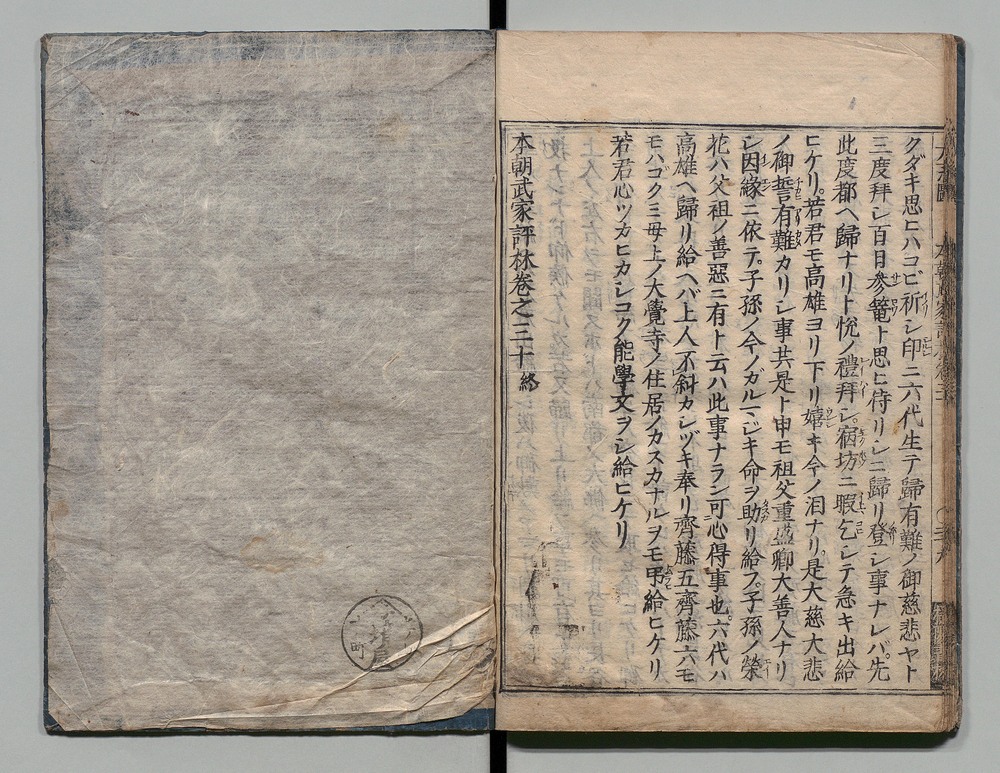 クダキ思ヒハコビ祈シ印ニ六代生テ歸有難ノ御慈悲ヤト
三度拜シ百日参篭ト思ヒ侍リシニ歸リ登シ事ナレバ。先
此度都ヘ歸ナリト悦ノ禮拜シ。宿坊ニ暇乞シテ急キ出給
ヒケリ。若君モ高雄ヨリ下リ嬉キ今ノ泪ナリ。是大慈大悲
ノ御誓有難カリシ事共是ト申モ祖父重盛卿大善人ナリ
シ因縁ニ依テ。子孫ノ今ノガルマジキ命ヲ助リ給フ。子孫ノ榮
花ハ父祖ノ善惡ニ有ト云ハ此事ナラン可心得事也。六代ハ
高雄ヘ歸リ給ヘバ上人不斜カシヅキ奉リ齊藤五齊藤六モ
モハゴクミ母上ノ大覺寺ノ住居ノカスカナルヲモ弔給ヒケリ
若君心ツカヒカシコク能學文ヲシ給ヒケリ
本朝武家評林巻之三十終
町